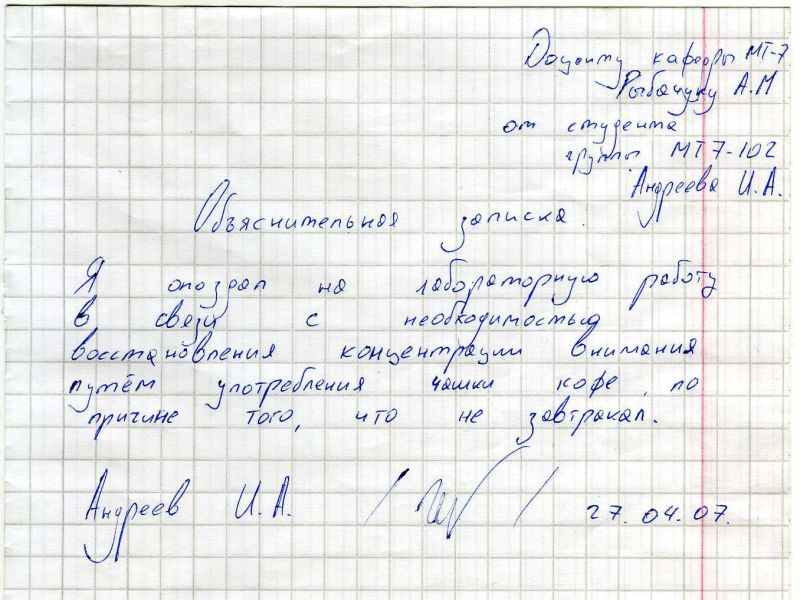 Доценту кафедры МТ-7
Рыбачуку А.М
от студента
группы МТ7-102
Андреева И.А.
Объяснительная записка
Я опоздал на лабораторную работу
в связи с необходимостью
восстановления концентрации внимания
путём употребления чашки кофе по
причине того, что не завтракал.
Андреев И.А. / / 27.04.07.